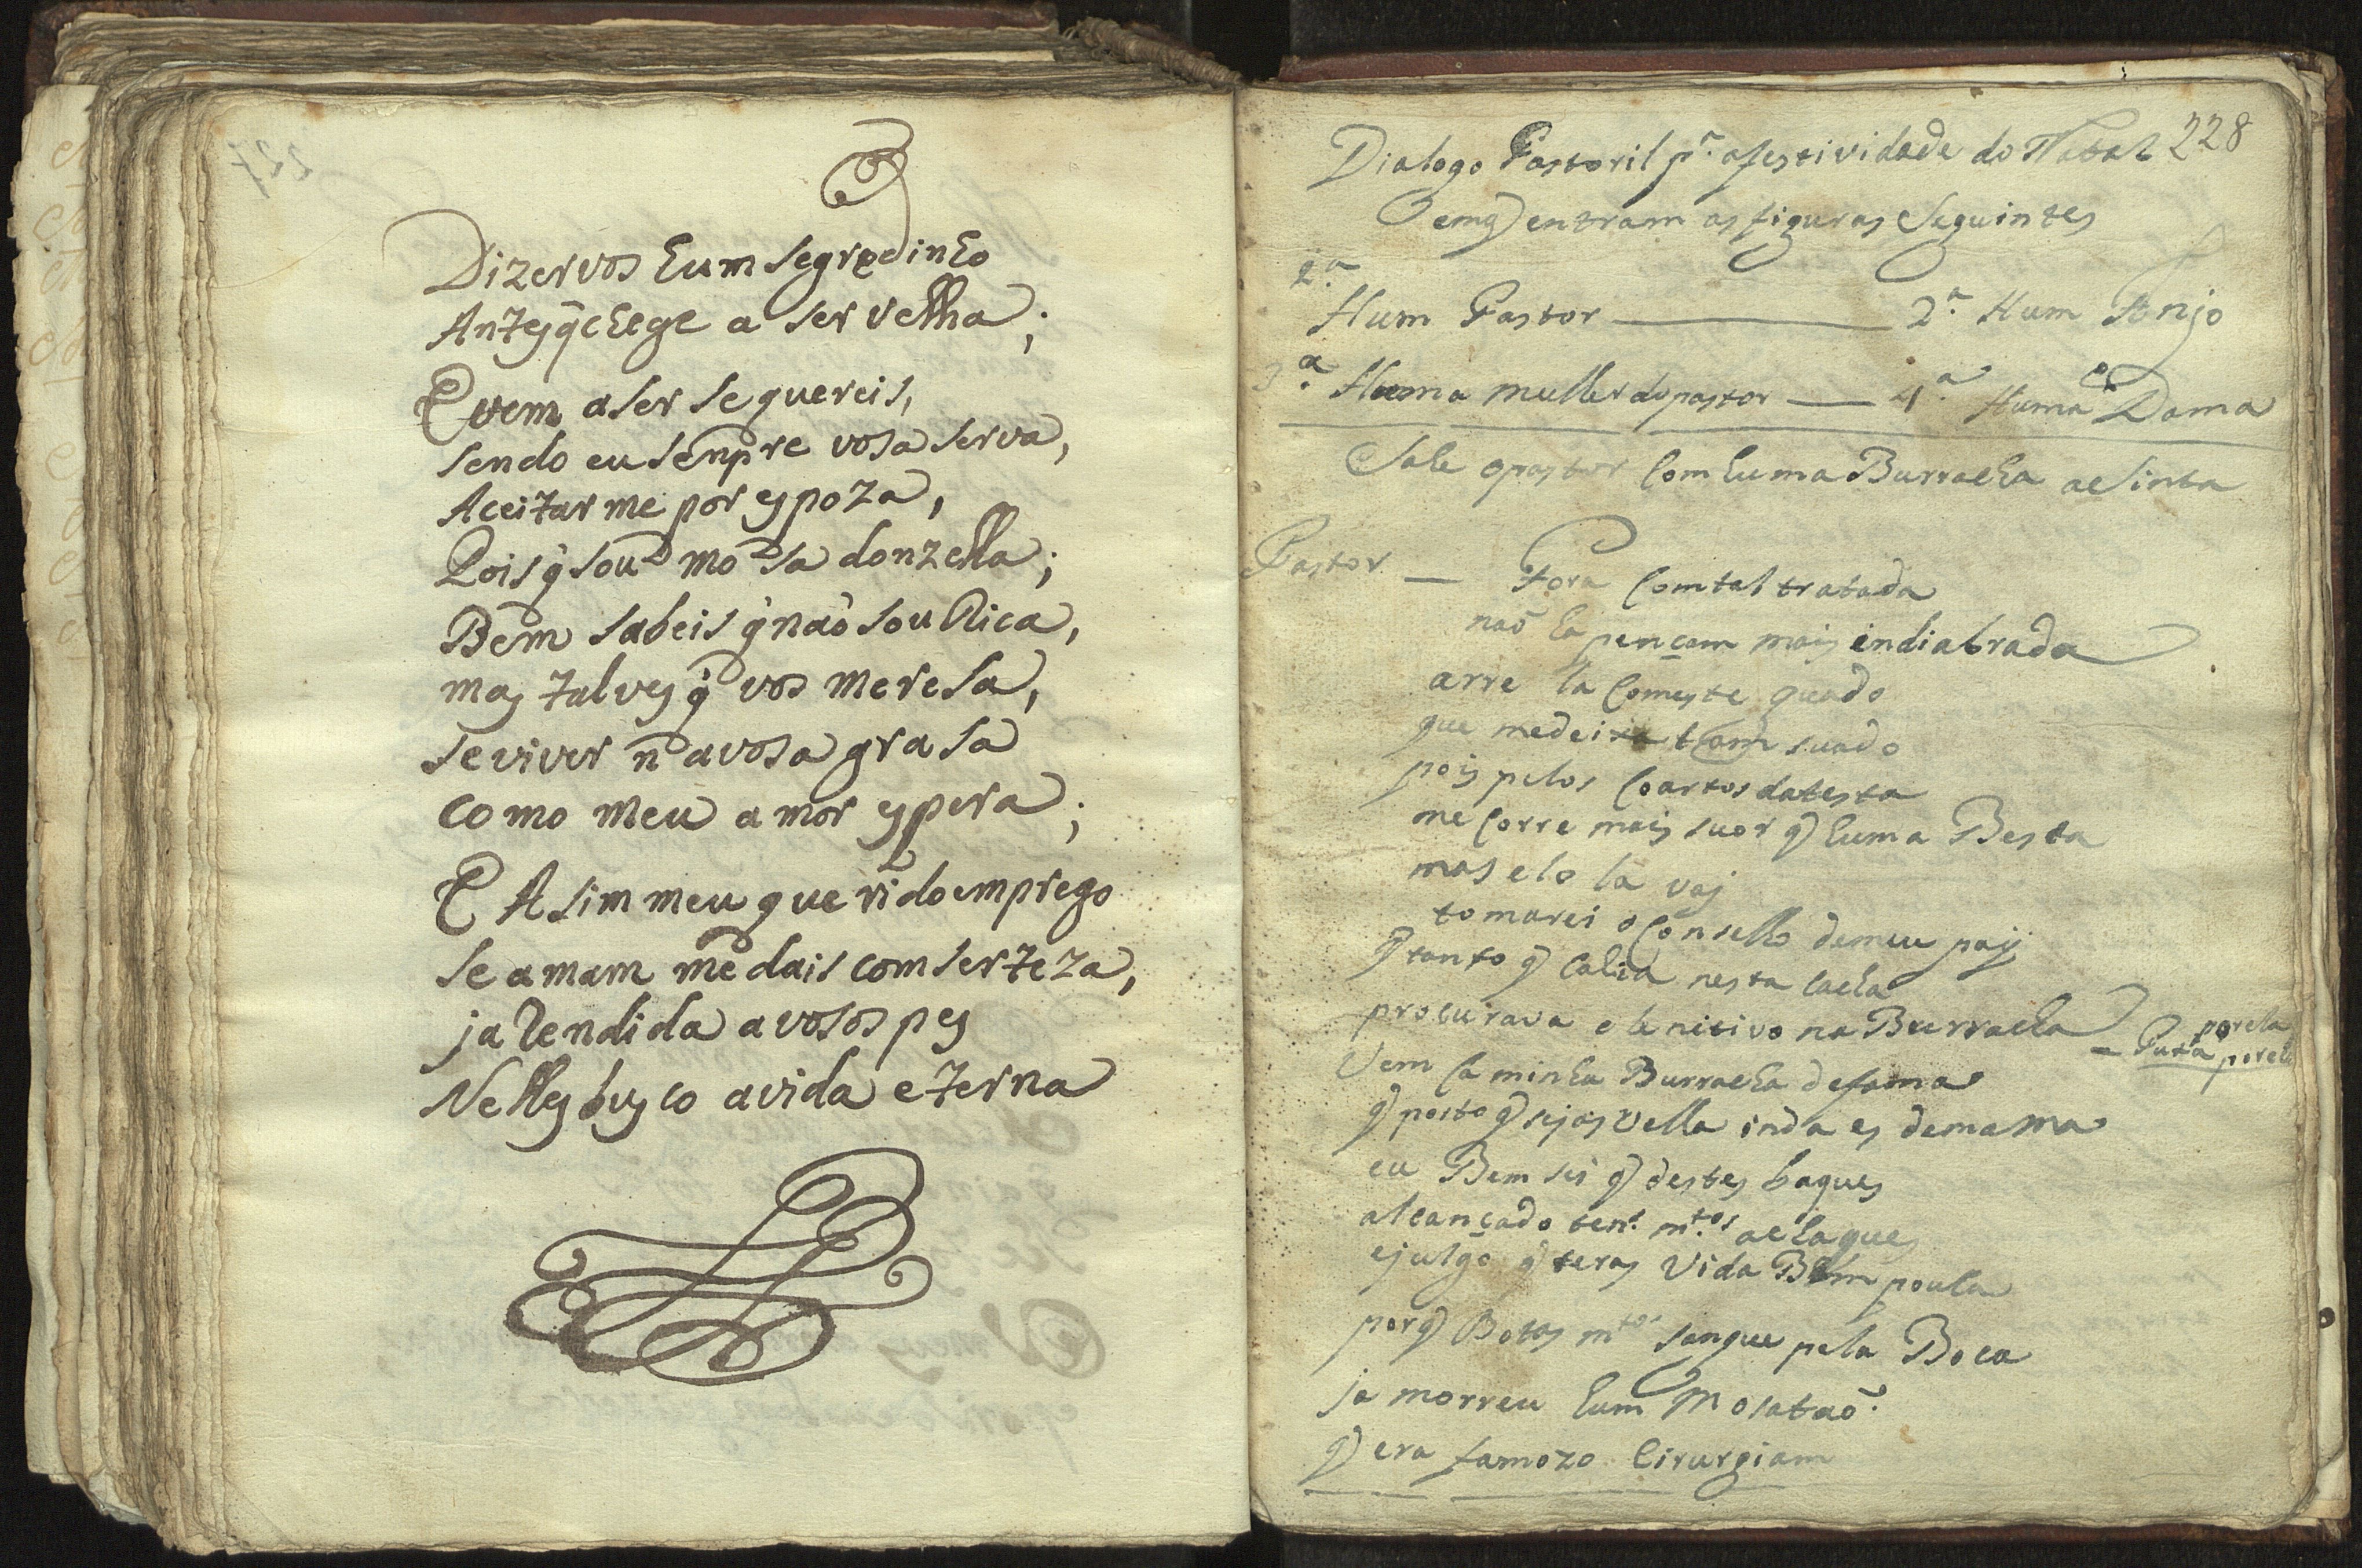 Dizervos hum segredinho
Antes q̃ chege a ser velha;
E vem a ser se quereis,
sendo eu senpre vosa serva,
Aceitar me por espoza,
Pois q̃ sou mosa donzella;
Bem sabeis q̃ naõ sou Rica,
mas talves q̃ vos meresa,
se viver na vosa grasa
como meu amor espera;
E Asim meu querido emprego
se a mam me dais com serteza,
ja Rendida a vosos pes
Nelles busco a vida eterna
228
Dialogo Pastoril pª. a festividade do Natal
em q̃ entram as figuras seguintes
Hum Pastor — 2.ª Hum Anjo
3.ª Huma mulher do pastor — 4.ª Huma Dama
Sale o pastor Com huma Burracha a Sinta
Pastor — Fora Com tal tratada
naõ ha pençam mais endiabrada
arre la Com este guado
que me deixa tam suado
pois pelos Coartos da testa
me Corre mais suor q̃ huma Besta
mas elo la vai
tomarei o Conselho de meu pay
q̃ tanto q̃ cahia nesta
procurava o lenitivo na Burracha
— Puxa por ela
Vem Ca minha Burracha de fama
q̃ posto q̃ sejas Velha inda es de mama
eu Bem sei q̃ destes baques
alcançado tens m.tos achaques
e julgo q̃ teras Vida Bem pouca
porq̃ Botas m.to sangue pela Boca
ja morreu hum Mosataõ
q̃ era famozo Cirurgiam